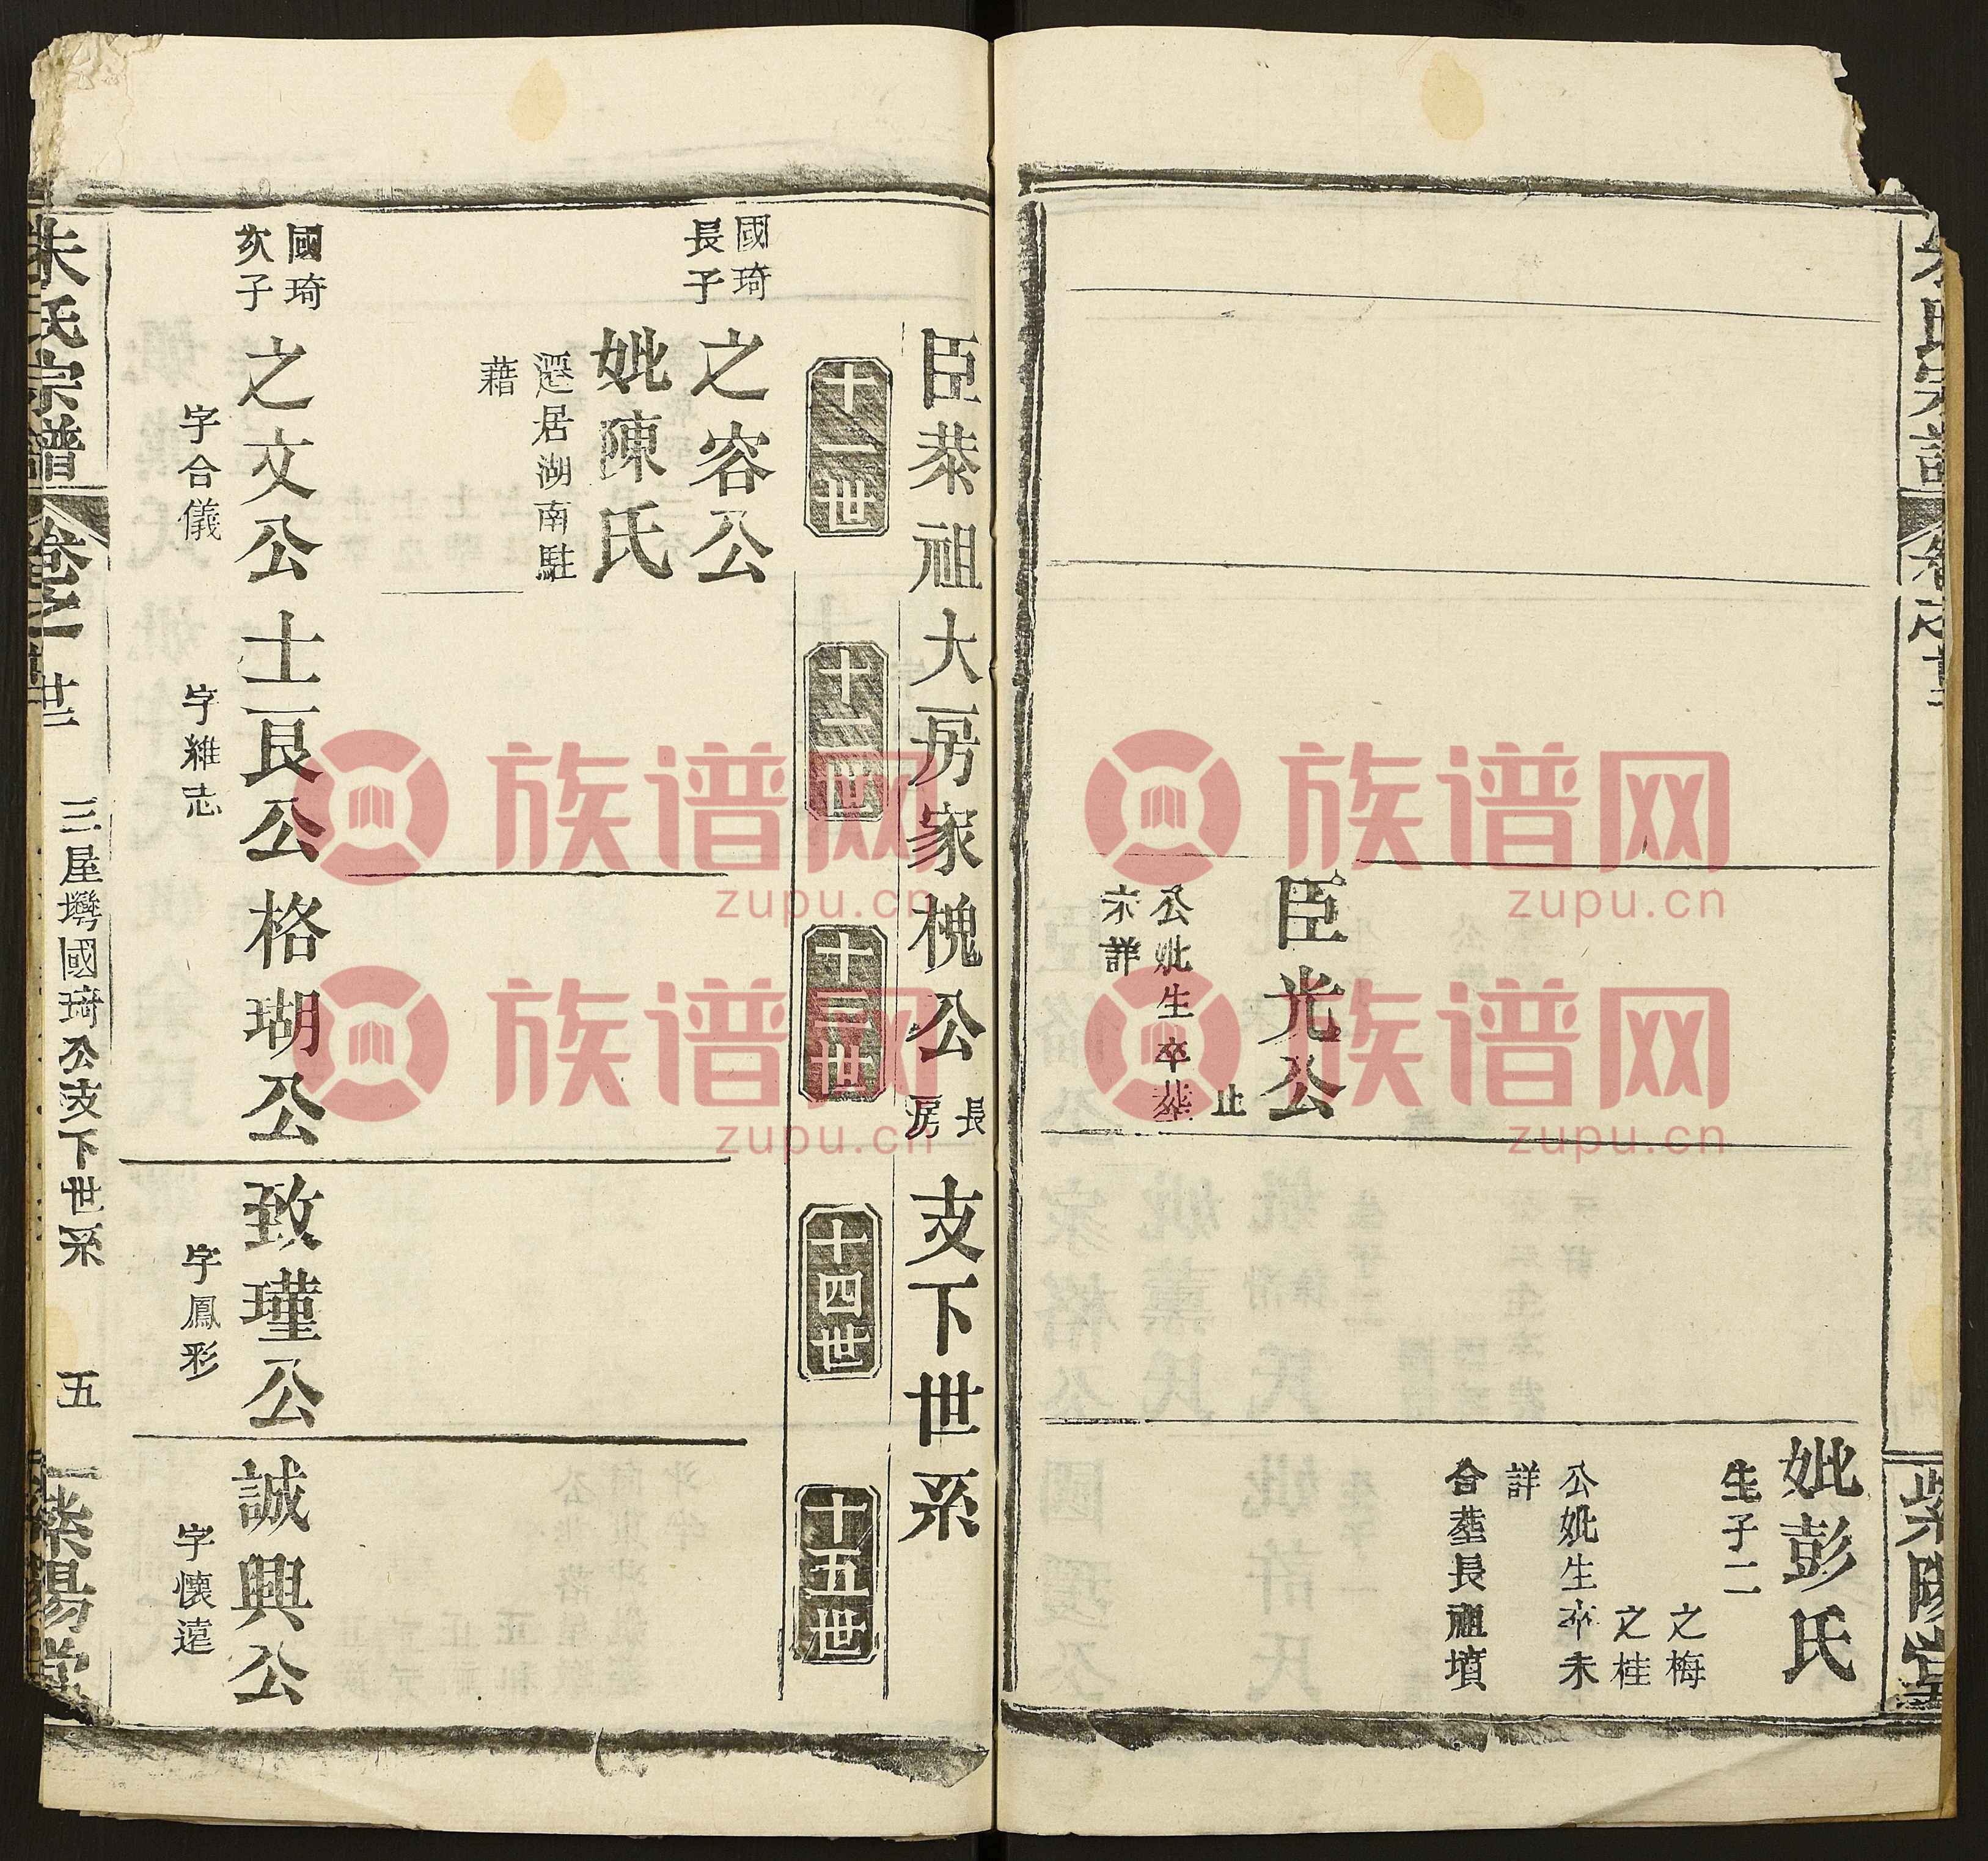 妣彭氏
生子二
之梅
之桂
公妣生卒未
詳
合塟長祖墳
臣光公
止
公妣生卒葬
未詳
臣恭祖大房家槐公長房支下世系
十一世
十二世
十三世
十四世
十五世
國琦
長子
之容公
妣陳氏
遷居湖南駐
藉
國琦
次子
之文公
字合儀
士良公
字維志
格瑚公
致瑾公
字鳳彩
誠興公
字懷遠
朱氏宗譜
三屋塆國琦公支下世系
五
紫陽堂
族谱网
zupu.cn
族谱网
zupu.cn
族谱网
zupu.cn
族谱网
zupu.cn